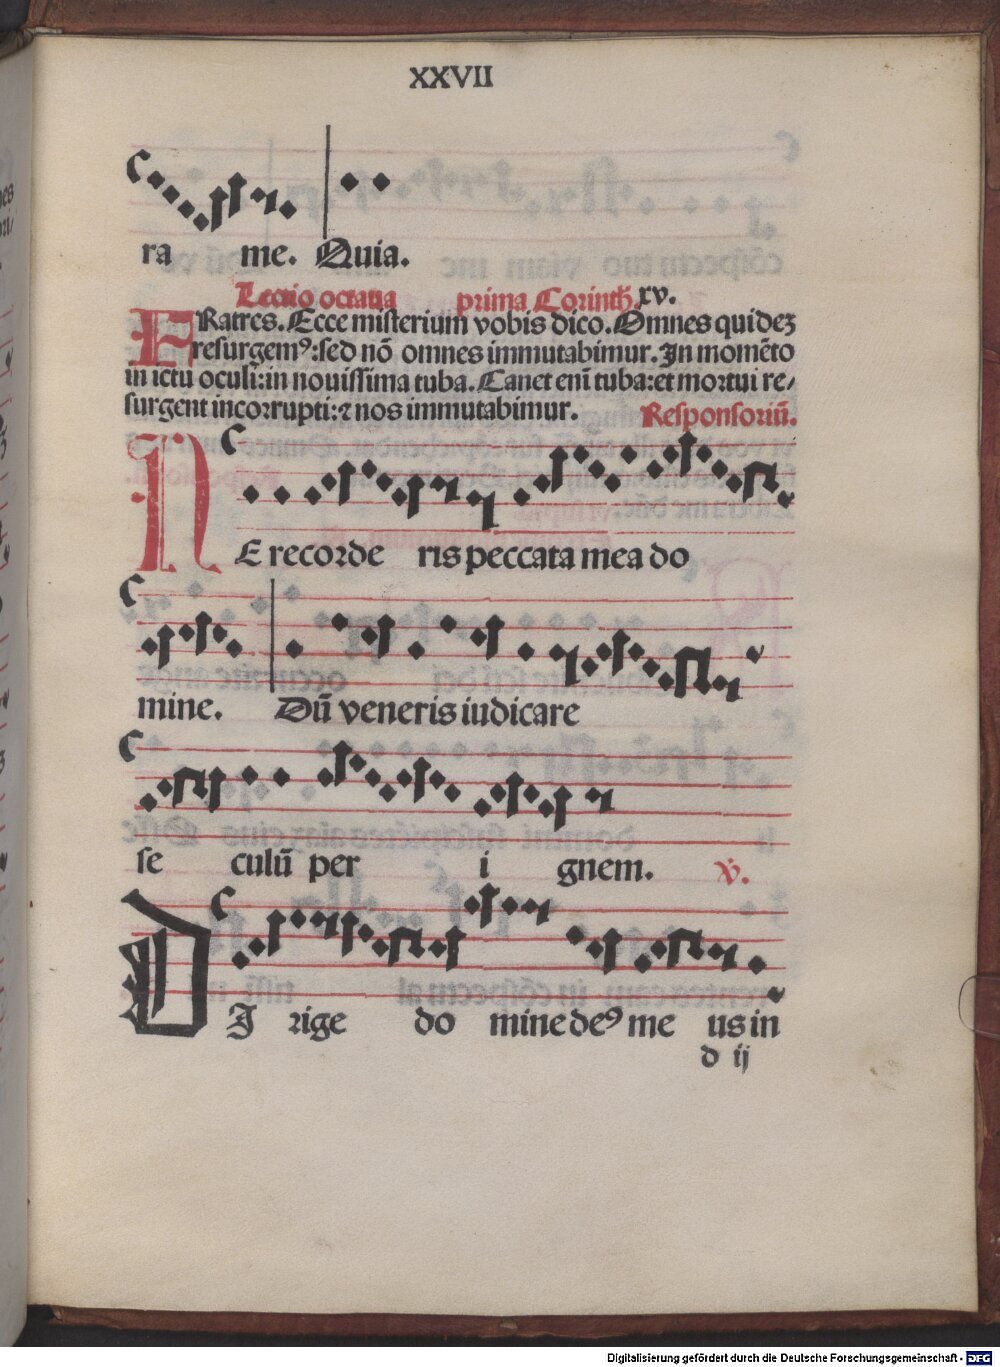 XXVII
ra me. Quia.
Lectio octaua prima Corinth. xv.
FRatres. Ecce misterium vobis dico. Omnes quideꝫ
resurgemꝰ: sed nō omnes immutabimur. In momēto
in ictu oculi: in nouissima tuba. Canet enī tuba: et mortui re/
surgent incorrupti: ⁊ nos immutabimur. Responsoriū.
NE recorde ris peccata mea do
mine. Dū veneris iudicare
se culū per i gnem. v̇.
DI rige do mine deꝰ me us in
d ij
Digitalisierung gefördert durch die Deutsche Forschungsgemeinschaft - DFG